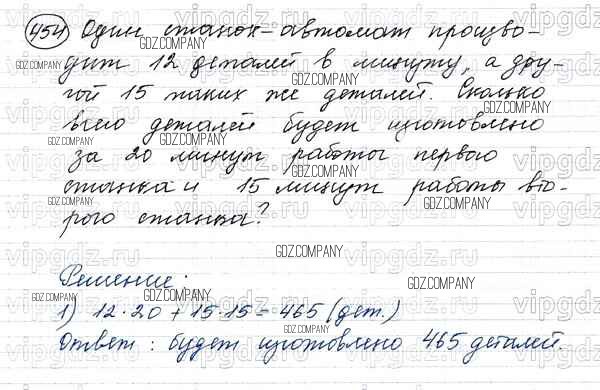 454 Один станок-автомат произво-
дит 12 деталей в минуту, а дру-
гой 15 таких же деталей. Сколько
всего деталей будет изготовлено
за 20 минут работы первого
станка и 15 минут работы вто-
рого станка?
Решение:
1) 12·20 + 15·15 = 465 (дет.)
Ответ: будет изготовлено 465 деталей.
GDZ.COMPANY
vipgdz.ru